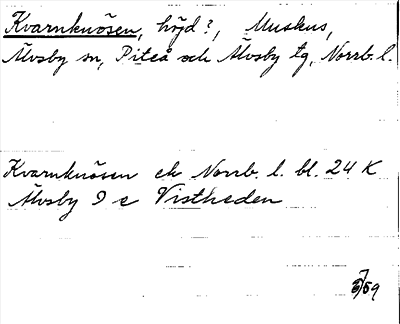 Kvarnknösen, höjd?, Muskus,
Älvsby sn, Piteå och Älvsby tg, Norrb. l.
Kvarnknösen ek Norrb. l. bl. 24 K
Älvsby 9 e Vistheden
/59